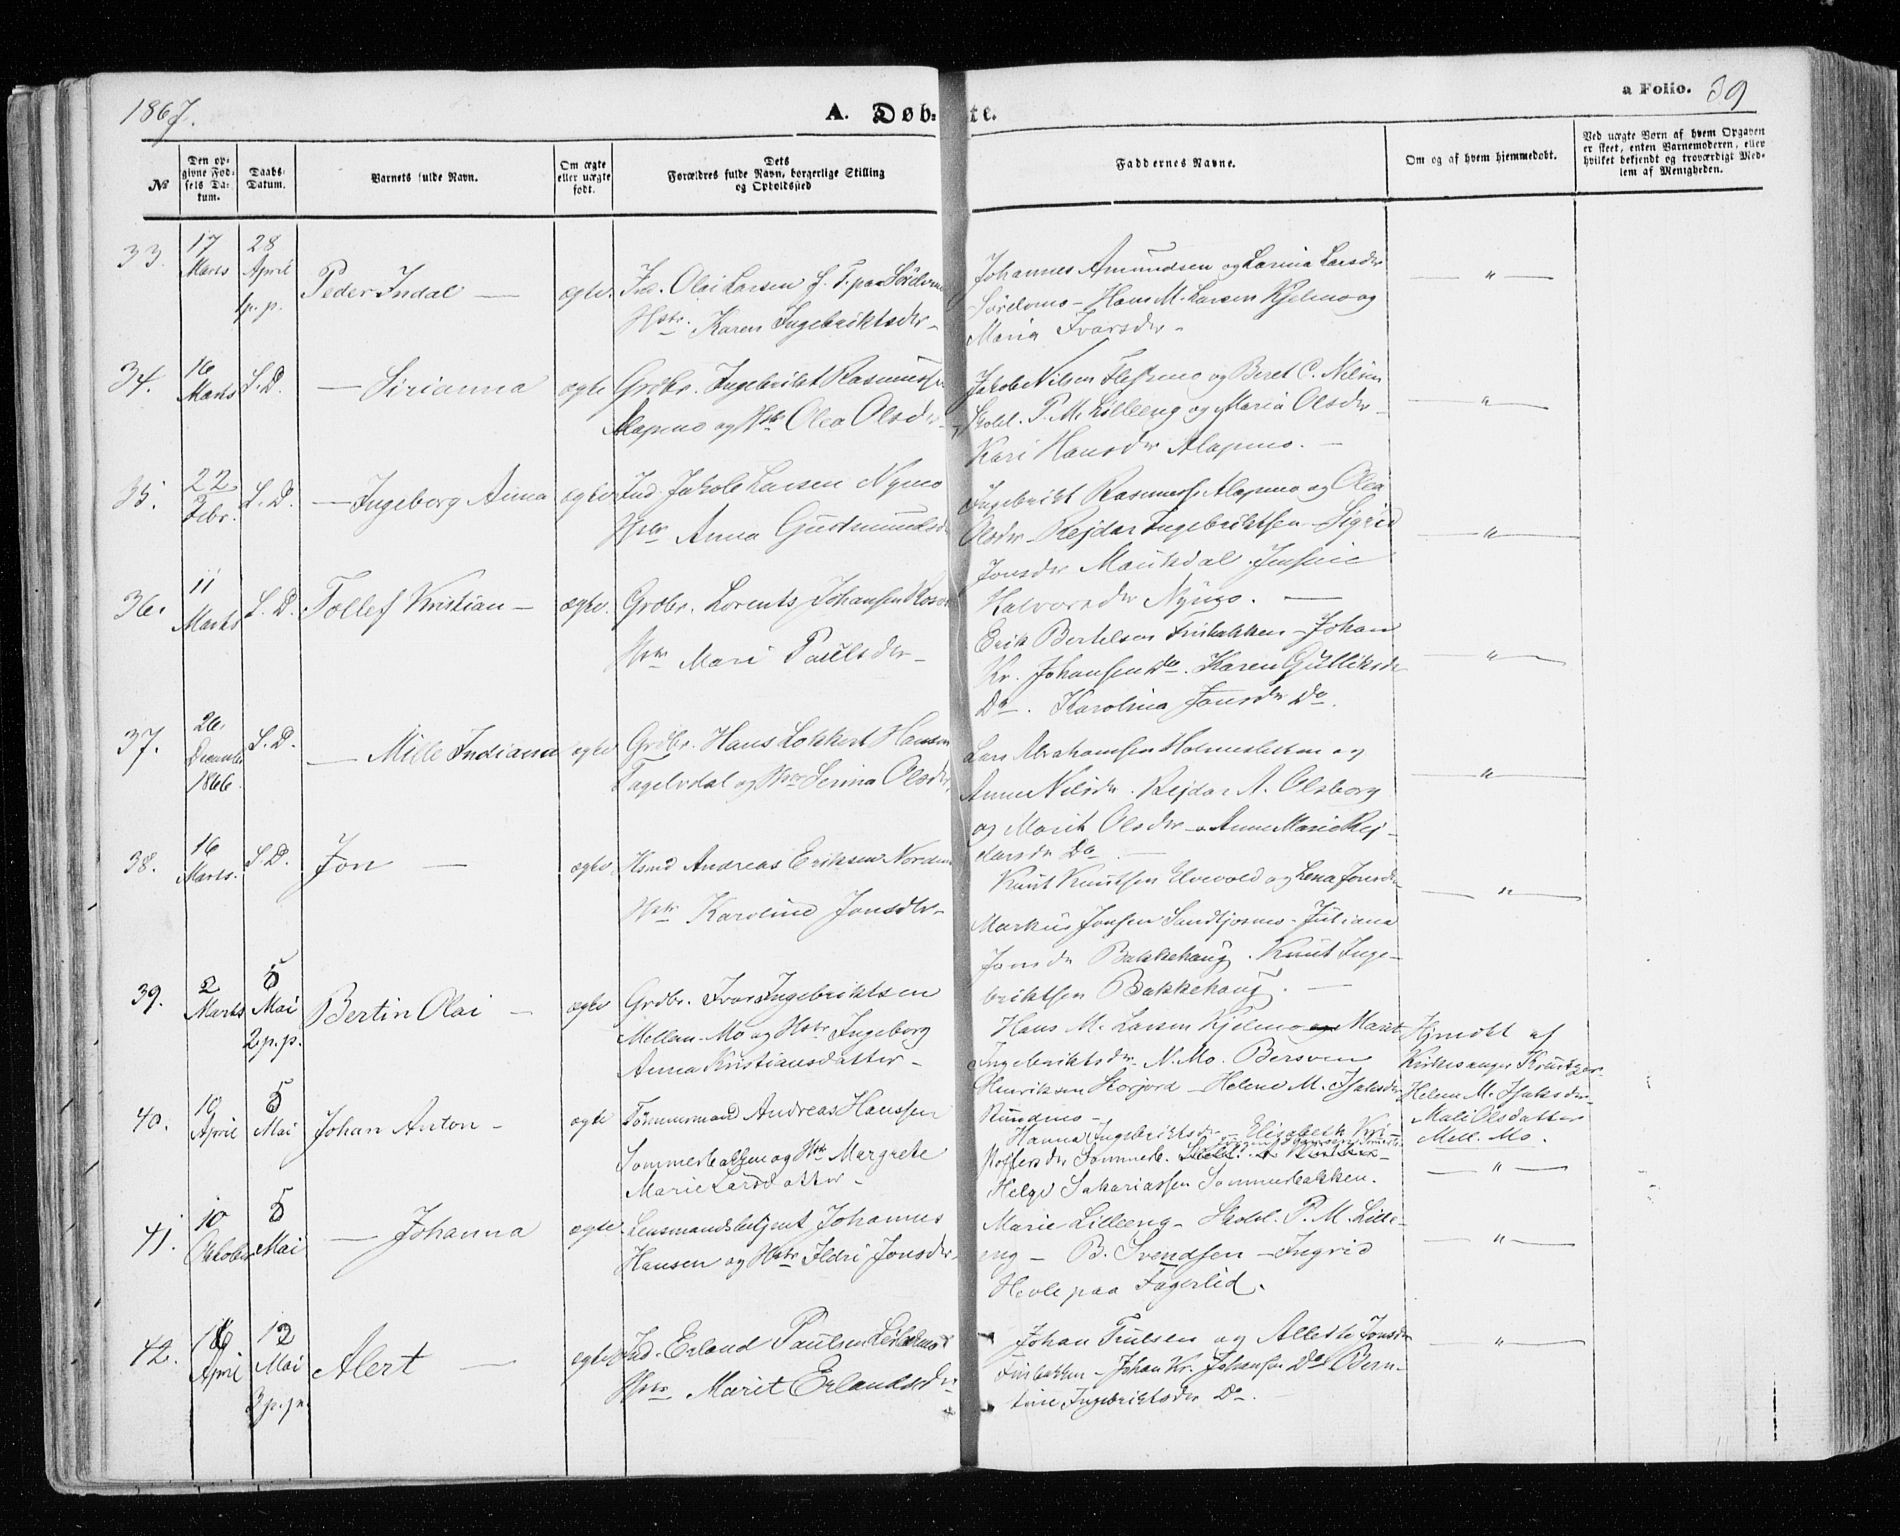 1867.
A. Døb- te.
a Folio. 39
№
Den op-
givne Fød-
sels Da-
tum.
Daabs-
Datum.
Barnets fulde Navn.
Om ægte
eller uægte
født.
Dets
Forældres fulde Navn, borgerlige Stilling
og Opholdssted
Faddernes Navne.
Om og af hvem hjemmedøbt.
Ved uægte Børn af hvem Opgaven
er skeet, enten Barnemoderen, eller
hvilket bekjendt og troværdigt Med-
lem af Menigheden.
33.
17
Marts
28
April
1 p. p.
Peder Indal —
ægte.
Ind. Olai Larsen f. T. paa
Hstr. Karen Ingebriktsdr-
Johannes Amundsen og Larina Larsdr
- Hans M. Larsen Kjelmo og
Maria Ivarsdr-
— " —
34.
16
Marts
S. D.
— Sirianna
ægte
Grdbr. Ingebrikt Rasmussen
Alapmo og Hstr Olea Olsdr
Jakob Nilsen og Beret C. Nilsen
Skolel. P. M. Lilleeng og Maria Olsdr-
Kari Hansdr Alapmo. —
— " —
35.
22
Febr.
S. D.
— Ingeborg Anna
ægte
Ind. Jakob Larsen Nymo
Hstr Anna Gudmundsdr
Ingebrikt Rasmuss. Alapmo og Olea
Olsdr - Rejdar Ingebriktsen - Sigrid
Jonsdr Mauksdal.
Halvorsdr Nymo. —
— " —
36.
11
Marts
S. D.
Tollef Kristian —
ægte.
Grdbr. Lorents Johansen
Hstr Mari Paulsdr-
Erik Bertelsen Finbakken - Johan
Kr. Johansen Do. Karen Gulliksdr
Do. Karolina Jonsdr Do.
— " —
37.
26.
December
1866.
S. D.
— Mille Indianna
ægte
Grdbr. Hans Lokkert Hansen
Fagelvdal og Hstr Serina Olsdr
Lars Abrahamsen Holmesletten og
Anne Nilsdr. Rejdar A. Olsborg
og Marit Olsdr - Anne Marie Rej-
darsdr Do —
— " —
38.
16
Marts.
S. D.
Jon —
ægte
Hsmd Andreas Eriksen
Hstr Karoline Jonsdtr-
Knut Knutsen Elvevold og Lena Jonsdr-
Markus Jonsen - Juliana
Jonsdr Bakkehaug. Knut Inge-
briktsen Bakkehaug. —
— " —
39.
2
Marts
5
Mai
2 p. p.
Bertin Olai —
ægte
Grdbr. Ivar Ingebriktsen
Mellem-Mo og Hstr Ingeborg
Anna Kristiansdatter -
Hans M. Larsen Kjelmo og Marit
Ingebriktsdr. N. Mo. Bersven
Henriksen Storjord - Helene M. Isaksdr
Rundmo -
Hjmdøbt af
Kirkesanger
Helene M. Isaksdr-
Mali Olsdatter
Mell. Mo.
40.
10
April
5
Mai
Johan Anton -
ægte
Tømmermand Andreas Hanssen
Sommerbakken og Hstr Margrete
Marie Larsdatter -
Hanna Ingebriktsdr - Elisabeth Kri-
stoffersdr Sommerb.
Helge Sakariassen Sommerbakken.
— " —
41.
10
Oktober
5
Mai
— Johanna
ægte
Lensmandsbetjent Johannes
Hansen og Hstr Ildri Jonsdr-
Marie Lilleeng - Skolel. P. M. Lille-
eng - B. Svendsen - Ingrid
paa Fagerlid.
— " —
42.
16
April
12
Mai
3 p. p.
Alert —
ægte
Ind. Erland Paulsen
Hstr Marit Erlandsdr
Johan Trulsen og Jonsdr
Finbakken - Johan Kr. Johansen Do Bern-
tine Ingebriktsdr Do. -
— " —